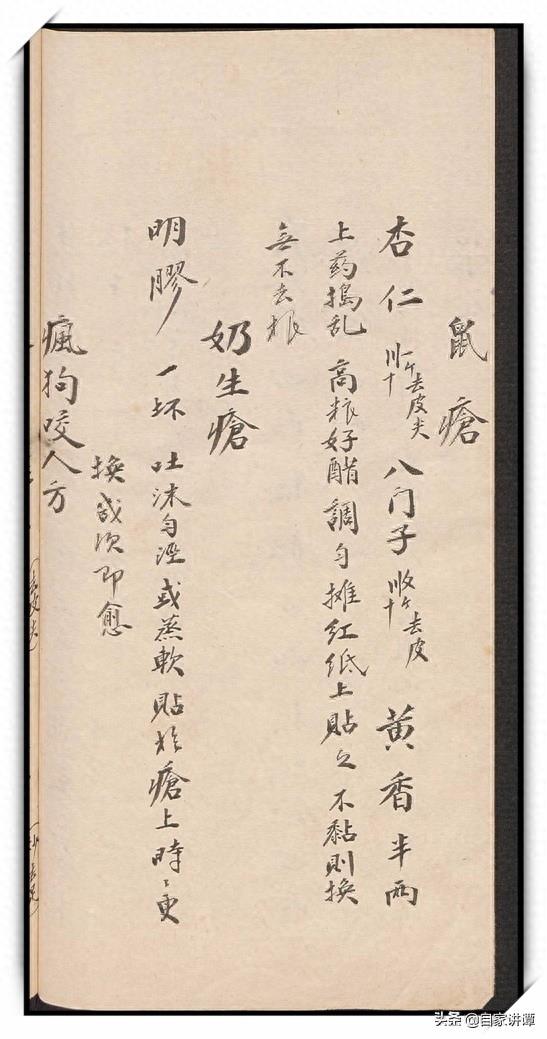 鼠瘡
杏仁 去皮尖 八门子 去皮 黄香半两
上药搗乱 高粮好醋調匀摊红纸上貼之 不黏則换
無不去根
奶生瘡
明膠 一坏 吐沫匀溼或蒸軟貼於瘡上時〻更
换 次即愈
瘋狗咬人方
头条 @自家讲谭